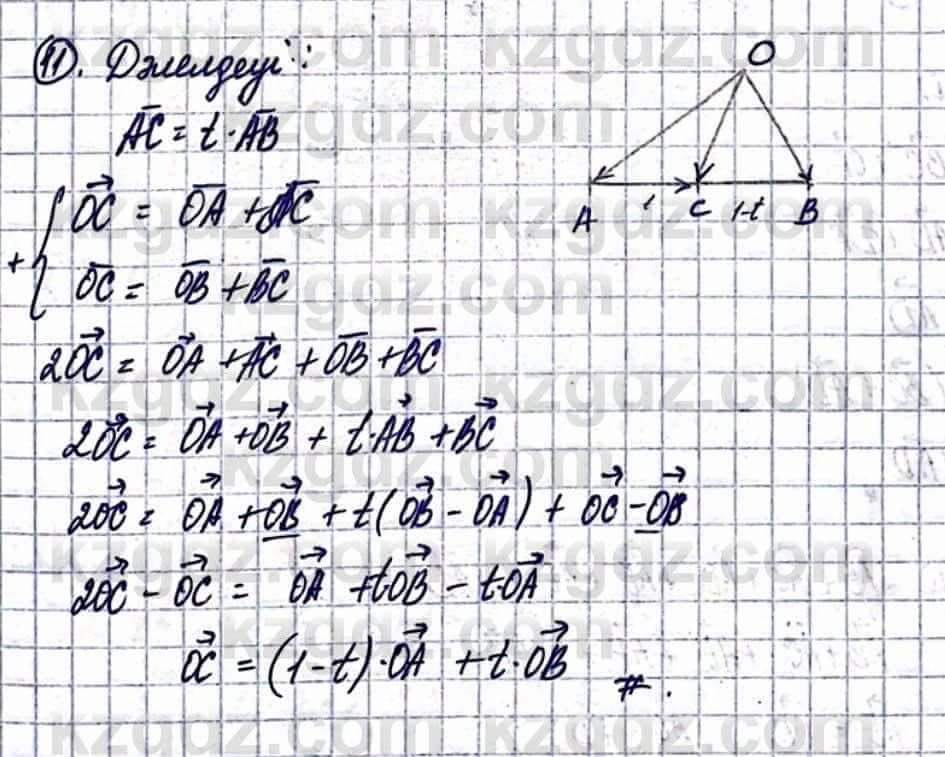 11. Дәлелдеуі:
AC = t·AB
+ { OC = OA + AC
OC = OB + BC
2OC = OA + AC + OB + BC
2OC = OA + OB + t·AB + BC
2OC = OA + OB + t(OB - OA) + OC - OB
2OC - OC = OA + tOB - t·OA
OC = (1-t)·OA + t·OB #.
O
A t C 1-t B
kzgdz.com